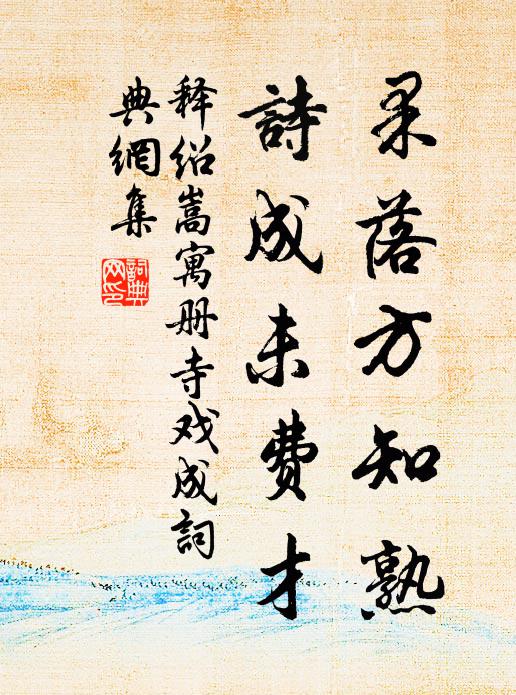 果落方知熟
詩成未费才
释绍嵩寓册寺戏成詞
典網集
詞典
网印